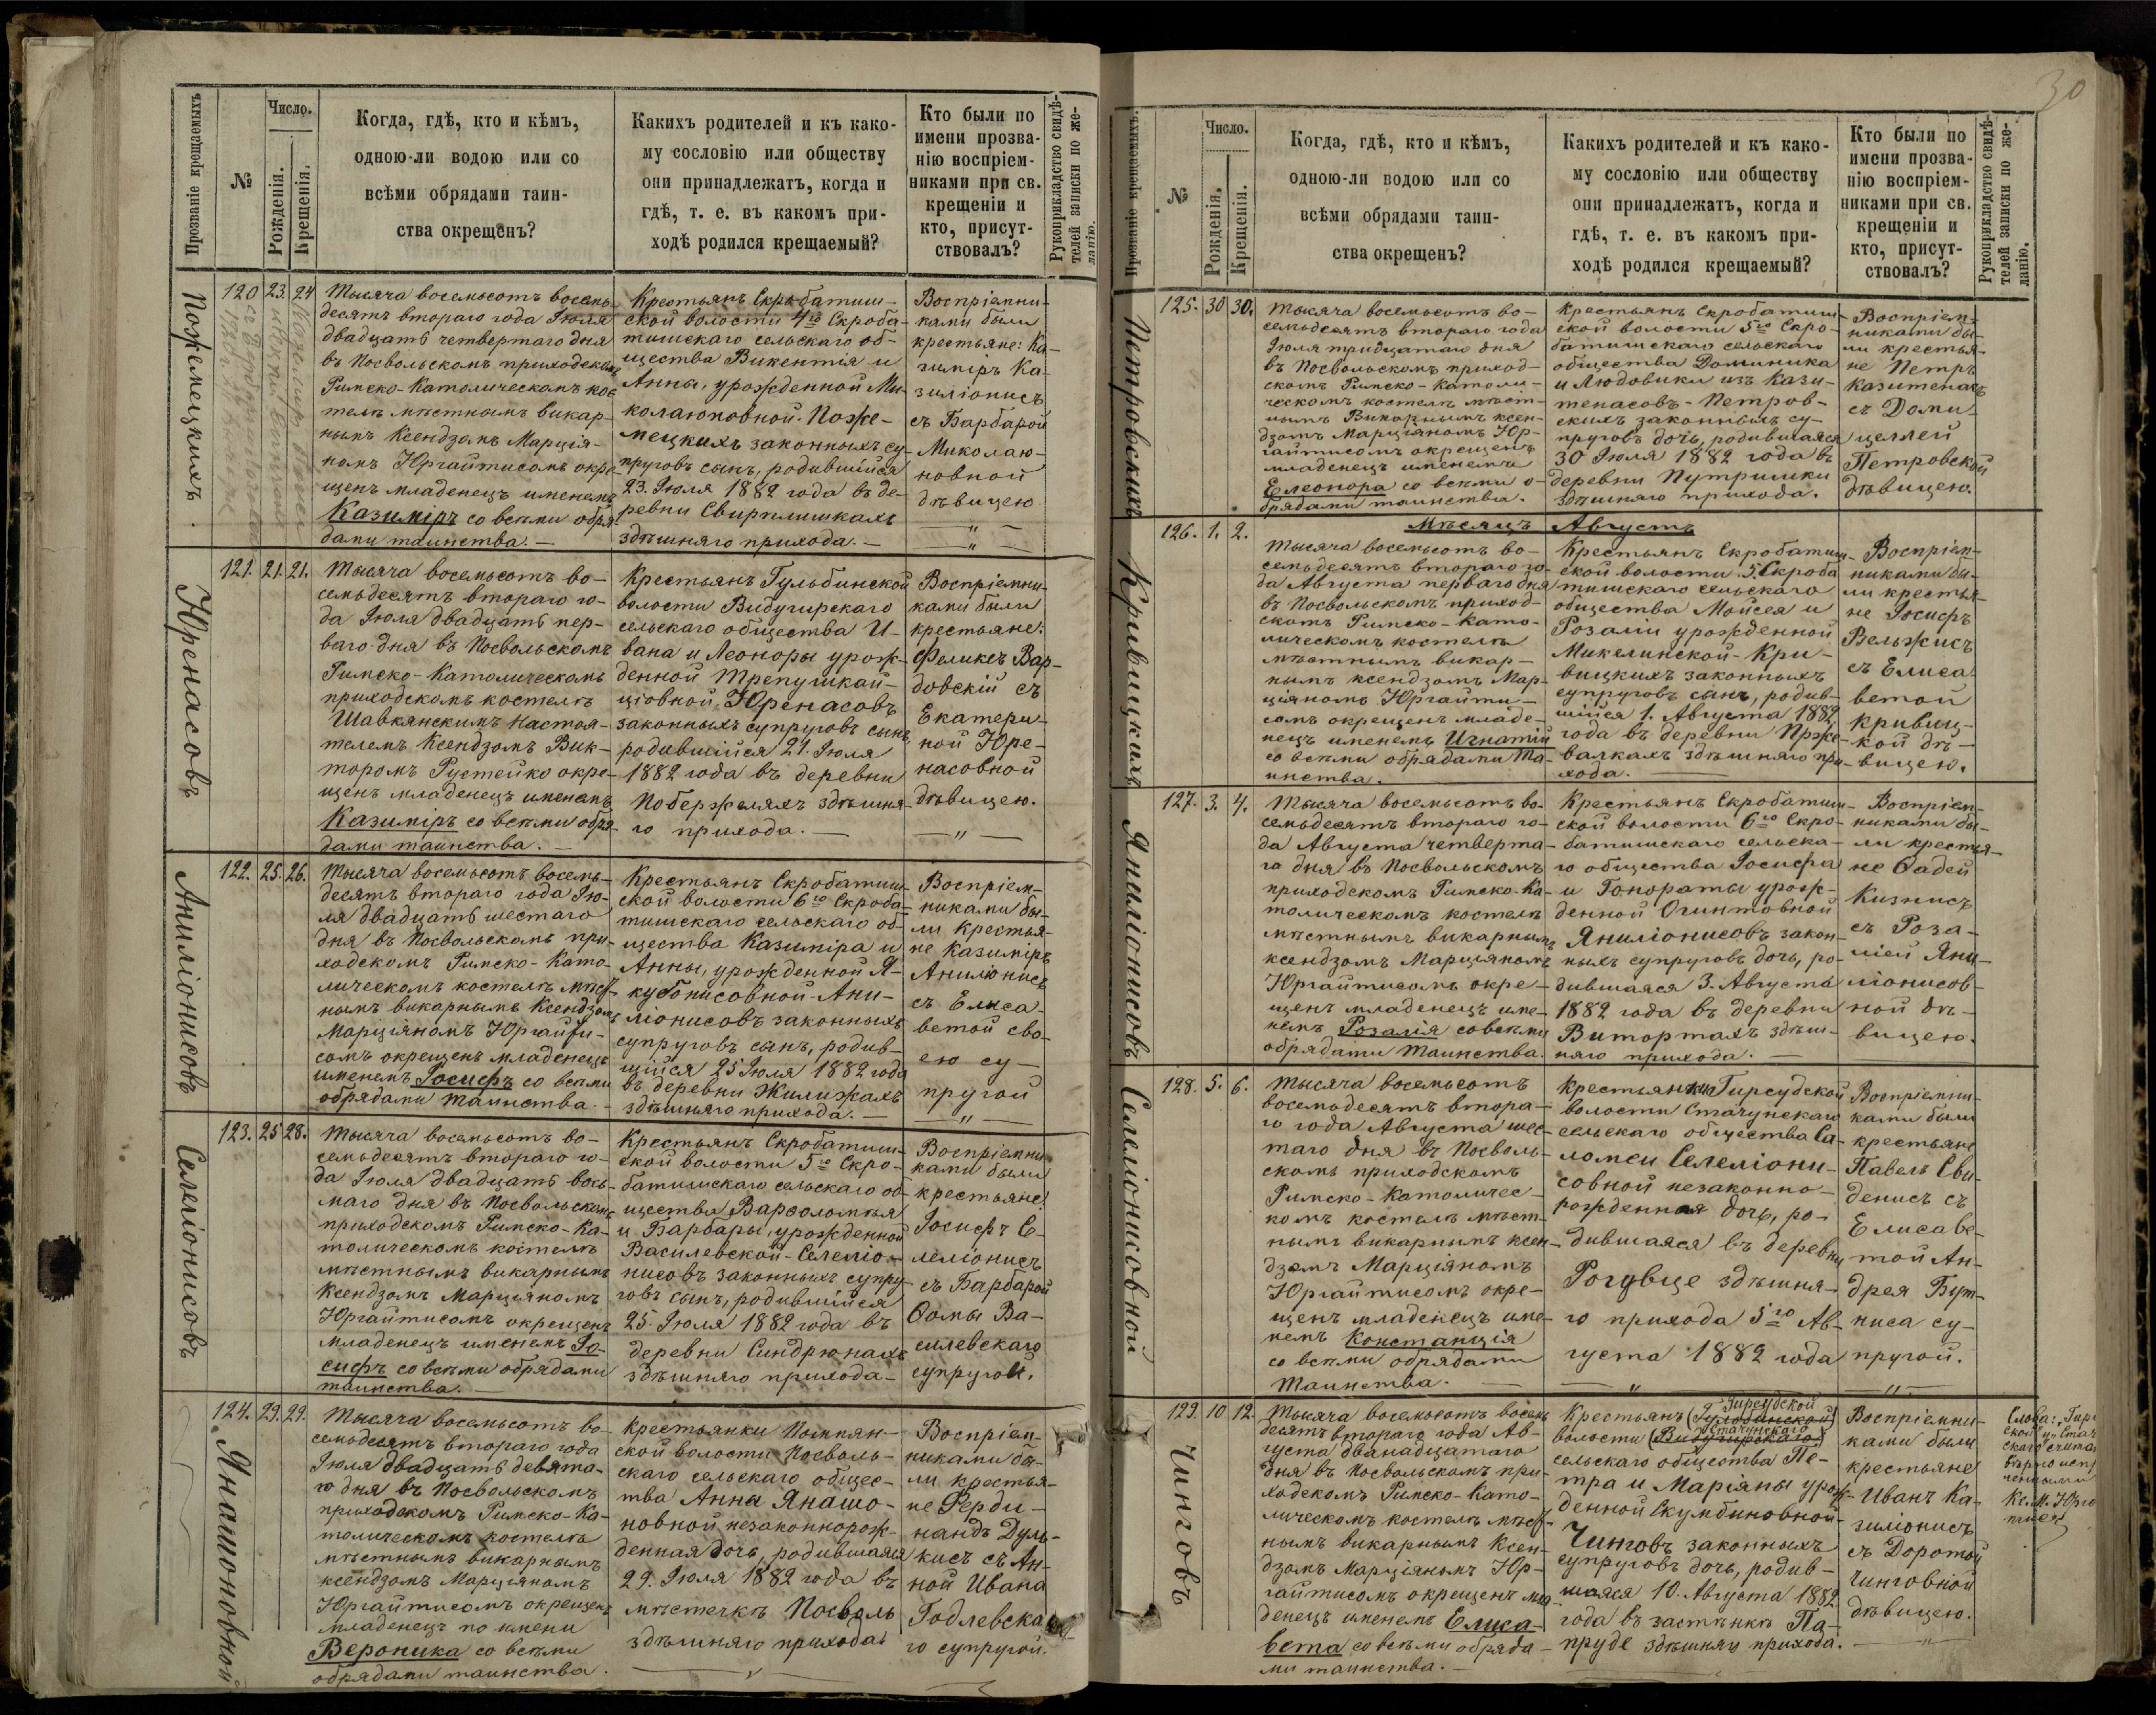 Прозваніе крещаемыхъ
№
Число.
Рожденія.
Крещенія.
Когда, гдѣ, кто и кѣмъ,
одною-ли водою или со
всѣми обрядами таин-
ства окрещенъ?
Какихъ родителей и къ како-
му сословію или обществу
они принадлежатъ, когда и
гдѣ, т. е. въ какомъ при-
ходѣ родился крещаемый?
Кто были по
имени прозва-
нію воспріем-
никами при св.
крещеніи и
кто, присут-
ствовалъ?
Рукоприкладство свидѣ-
телей записки по же-
ланію.
Пожемецкихъ
120 23. 24
Тысяча восемьсотъ восемь-
десятъ втораго года Іюля
двадцать четвертаго дня
въ Посвольскомъ приходскомъ
Римско-Католическомъ кос-
телѣ мѣстнымъ викар-
нымъ Ксендзомъ Марція-
номъ Юргайтисомъ окре-
щенъ младенецъ именемъ
Казиміръ со всѣми обря-
дами таинства.
Крестьянъ Скробатиш-
ской волости 4го Скроба-
тишскаго сельскаго об-
щества Викентія и
Анны, урожденной Ми-
колаюновной Поже-
мецкихъ законныхъ су-
пруговъ сынъ, родившійся
23. Іюля 1882 года въ де-
ревни Свирплишкахъ
здѣшняго прихода.
Воспріемни-
ками были
крестьяне: Ка-
зиміръ Ка-
зиліонисъ
съ Барбарой
Миколаю-
новной
дѣвицею
Юренасовъ
121. 21. 21.
Тысяча восемьсотъ во-
семьдесятъ втораго го-
да Іюля двадцать пер-
ваго дня въ Посвольскомъ
Римско-Католическомъ
приходскомъ костелѣ
Шавкянскимъ Настоя-
телемъ Ксендзомъ Вик-
торомъ Рустейко окре-
щенъ младенецъ именемъ
Казиміръ со всѣми обря-
дами таинства.
Крестьянъ Гульбинской
волости Видугирскаго
сельскаго общества И-
вана и Леоноры урож-
денной Трепушкай-
ціовной Юренасовъ
законныхъ супруговъ сынъ,
родившійся 21. Іюля
1882 года въ деревни
Побержеляхъ здѣшня-
го прихода.
Воспріемни-
ками были
крестьяне:
Феликсъ Вар-
довскій съ
Екатери-
ной Юре-
насовной
дѣвицею.
Анилiонисовъ
122. 25. 26.
Тысяча восемьсотъ восемь-
десятъ втораго года Ію-
ля двадцать шестаго
дня въ Посвольскомъ при-
ходскомъ Римско-Като-
лическомъ костелѣ мѣст-
нымъ викарнымъ Ксендзомъ
Марціяномъ Юргайти-
сомъ окрещенъ младенецъ
именемъ Іосифъ со всѣми
обрядами таинства.
Крестьянъ Скробатиш-
ской волости 6го Скроба-
тишскаго сельскаго об-
щества Казиміра и
Анны, урожденной Я-
кубонисовной-Ани-
ліонисовъ законныхъ
супруговъ сынъ, родив-
шійся 25 Іюля 1882 года
въ деревни Жилижахъ
здѣшняго прихода.
Воспріем-
никами бы-
ли крестья-
не Казиміръ
Анилюнисъ
съ Елиса-
ветой сво-
ею су-
пругой
Селеліонисовъ
123. 25 28.
Тысяча восемьсотъ во-
семьдесятъ втораго го-
да Іюля двадцать вось-
маго дня въ Посвольскомъ
приходскомъ Римско-Ка-
толическомъ костелѣ
мѣстнымъ викарнымъ
Ксендзомъ Марціяномъ
Юргайтисомъ окрещенъ
младенецъ именемъ Іо-
сифъ со всѣми обрядами
таинства.
Крестьянъ Скробатиш-
ской волости 5го Скро-
батишскаго сельскаго об-
щества Варѳоломѣя
и Барбары, урожденной
Василевской-Селеліо-
нисовъ законныхъ супру-
говъ сынъ, родившійся
25. Іюля 1882 года въ
деревни Синдрюнахъ
здѣшняго прихода
Воспріемни-
ками были
крестьяне:
Іосифъ Се-
леліонисъ
съ Барбарой
Ѳомы Ва-
силевскаго
супругой.
Янашоновной
124. 29. 29.
Тысяча восемьсотъ во-
семьдесятъ втораго года
Іюля двадцать девята-
го дня въ Посвольскомъ
приходскомъ Римско-Ка-
толическомъ костелѣ
мѣстнымъ викарнымъ
ксендзомъ Марціяномъ
Юргайтисомъ окрещенъ
младенецъ по имени
Вероника со всѣми
обрядами таинства.
Крестьянки Помпян-
ской волости Посволь-
скаго сельскаго общес-
тва Анна Янашо-
новной незаконнорож-
денная дочь, родившаяся
29. Іюля 1882 года въ
мѣстечкѣ Посволь
здѣшняго прихода
Воспріем-
никами бы-
ли крестья-
не Ферди-
нандъ Дуль-
кисъ съ Ан-
ной Ивана
Годлевска-
го супругой.
30
Прозваніе крещаемыхъ
№
Число.
Рожденія.
Крещенія.
Когда, гдѣ, кто и кѣмъ,
одною-ли водою или со
всѣми обрядами таин-
ства окрещенъ?
Какихъ родителей и къ како-
му сословію или обществу
они принадлежатъ, когда и
гдѣ, т. е. въ какомъ при-
ходѣ родился крещаемый?
Кто были по
имени прозва-
нію воспріем-
никами при св.
крещеніи и
кто, присут-
ствовалъ?
Рукоприкладство свидѣ-
телей записки по же-
ланію.
Петровскихъ
125. 30 30.
Тысяча восемьсотъ во-
семьдесятъ втораго года
Іюля тридцатаго дня
въ Посвольскомъ приход-
скомъ Римско-католи-
ческомъ костелѣ мѣст-
нымъ Викарнымъ ксен-
дзомъ Марціяномъ Юр-
гайтисомъ окрещенъ
младенецъ именемъ
Елеонора со всѣми о-
брядами таинства.
Крестьянъ Скробатиш-
ской волости 5го Скро-
батишскаго сельскаго
общества Доминика
и Людовики изъ Кази-
тенасовъ-Петров-
скихъ законныхъ су-
пруговъ дочь, родившаяся
30 Іюля 1882 года въ
деревни Путришки
здѣшняго прихода.
Воспріем-
никами бы-
ли крестья-
не Петръ
Казитенасъ
съ Доми-
целлей
Петровской
дѣвицею.
Мѣсяцъ Августъ
Кривицкихъ
126. 1. 2.
Тысяча восемьсотъ во-
семьдесятъ втораго го-
да Августа перваго дня
въ Посвольскомъ приход-
скомъ Римско-Като-
лическомъ костелѣ
мѣстнымъ викар-
нымъ ксендзомъ Мар-
ціяномъ Юргайти-
сомъ окрещенъ младе-
нецъ именемъ Игнатій
со всѣми обрядами та-
инства.
Крестьянъ Скробатиш-
ской волости 5. Скроба
тишскаго сельскаго
общества Мойсея и
Розаліи урожденной
Микелинской-Кри-
вицкихъ законныхъ
супруговъ сынъ, родив-
шійся 1. Августа 1882
года въ деревни Прже-
валкахъ здѣшняго при-
хода.
Воспріем-
никами бы-
ли крестья-
не Іосифъ
Вельжисъ
съ Елиса-
ветой
Кривиц-
кой дѣ-
вицею.
Янилiонисовъ
127. 3. 4.
Тысяча восемьсотъ во-
семьдесятъ втораго го-
да Августа четверта-
го дня въ Посвольскомъ
приходскомъ Римско-Ка-
толическомъ костелѣ
мѣстнымъ викарнымъ
ксендзомъ Марціяномъ
Юргайтисомъ окре-
щенъ младенецъ име-
немъ Розалія со всѣми
обрядами таинства.
Крестьянъ Скробатиш-
ской волости 6го Скро-
батишскаго сельска-
го общества Іосифа
и Гонораты урож-
денной Огинтовной
Яниліонисовъ закон-
ныхъ супруговъ дочь, ро-
дившаяся 3. Августа
1882 года въ деревни
Витортахъ здѣш-
няго прихода.
Воспріем-
никами бы-
ли крестья-
не Ѳадей
Кизнисъ
съ Роза-
ліей Яни-
ліонисов-
ной дѣ-
вицею.
Селеліонисовной
128. 5. 6.
Тысяча восемьсотъ
восемьдесятъ втора-
го года Августа шес-
таго дня въ Посволь-
скомъ приходскомъ
Римско-Католичес-
комъ костелѣ мѣст-
нымъ викарнымъ ксен-
дзомъ Марціяномъ
Юргайтисомъ окре-
щенъ младенецъ име-
немъ Констанція
со всѣми обрядами
Таинства.
Крестьянки Гирсудской
волости Стачунскаго
сельскаго общества Са-
ломеи Селеліони-
совной незаконно-
рожденная дочь, ро-
дившаяся въ деревни
Рогувце здѣшня-
го прихода 5го Ав-
густа 1882 года
Воспріемни-
ками были
крестьяне
Павелъ Сви-
денисъ съ
Елисаве-
той Ан-
дрея Бут-
ниса су-
пругой.
Чинговъ
129. 10 12.
Тысяча восемьсотъ восемь
десятъ втораго года Ав-
густа двѣнадцатаго
дня въ Посвольскомъ при-
ходскомъ Римско-Като-
лическомъ костелѣ мѣст-
нымъ викарнымъ Ксен-
дзомъ Марціяномъ Юр-
гайтисомъ окрещенъ мла-
денецъ именемъ Елиса-
вета со всѣми обряда-
ми таинства.
Гирсудской
Крестьянъ (Гульбинской)
Стачунскаго
волости (Видугирскаго)
сельскаго общества Пе-
тра и Маріяны урож-
денной Скумбиновной
Чинговъ законныхъ
супруговъ дочь, родив-
шаяся 10. Августа 1882
года въ застѣнкѣ Па-
пруде здѣшняго прихода.
Воспріемни-
ками были
крестьяне
Иванъ Ка-
зиліонисъ
съ Доротой
Чинговной
дѣвицею.
Слова: "Гирс
ской и Стач
скаго счита
вѣрно исп
ченными
Кс. М. Юрга